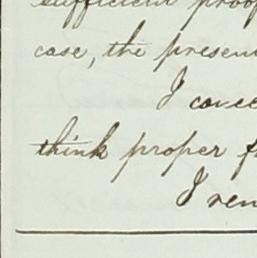 sufficient proof
case, the presen
I conce
think proper f
I ren